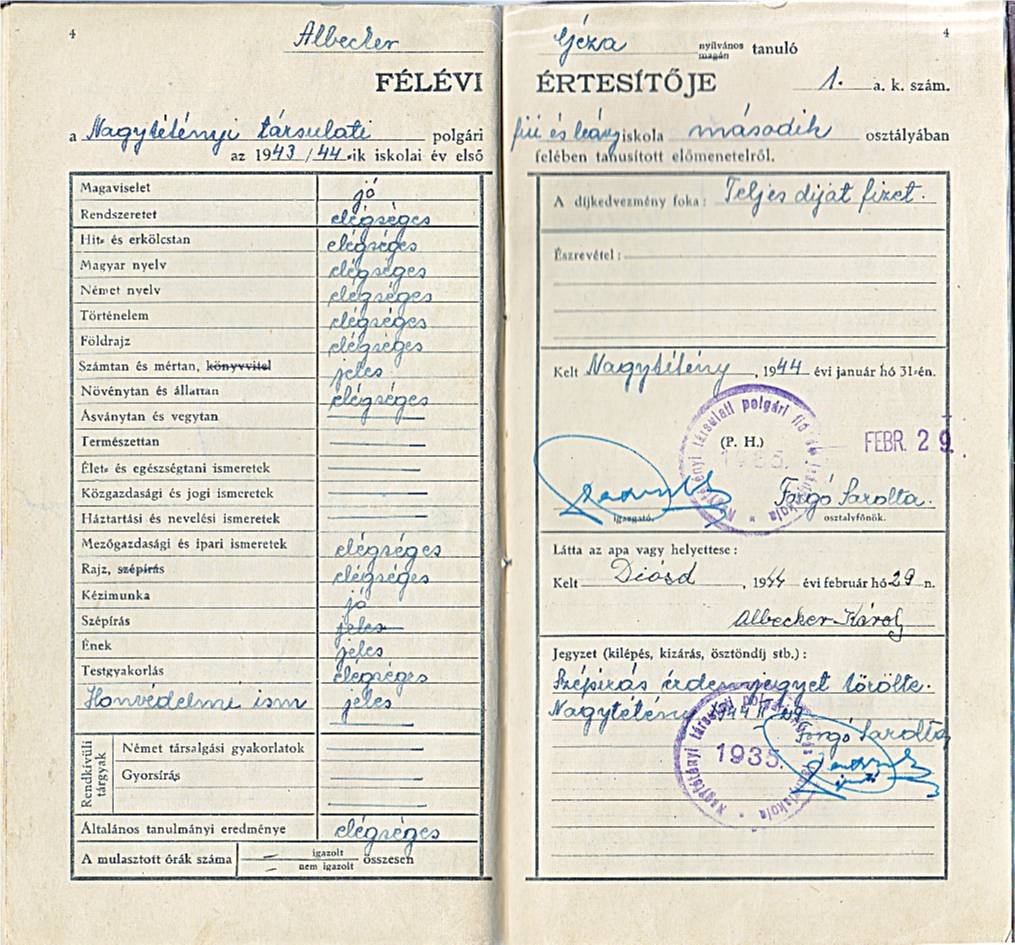 4
Albecker
FÉLÉVI
a Nagytétényi társulati polgári
az 1943/44-ik iskolai év első
Magaviselet jó
Rendszeretet elégséges
Hit- és erkölcstan elégséges
Magyar nyelv elégséges
Német nyelv elégséges
Történelem elégséges
Földrajz elégséges
Számtan és mértan, könyvvitel jeles
Növénytan és állattan elégséges
Ásványtan és vegytan
Természettan
Élet- és egészségtani ismeretek
Közgazdasági és jogi ismeretek
Háztartási és nevelési ismeretek
Mezőgazdasági és ipari ismeretek elégséges
Rajz, szépírás elégséges
Kézimunka jó
Szépírás jeles
Ének jeles
Testgyakorlás elégséges
Honvédelmi ism jeles
Rendkívüli tárgyak
Német társalgási gyakorlatok
Gyorsírás
Általános tanulmányi eredménye elégséges
A mulasztott órák száma igazolt nem igazolt összesen
4
Géza nyilvános magán tanuló
ÉRTESÍTŐJE 1. a. k. szám.
fiú és leány iskola második osztályában
felében tanusított előmenetelről.
A díjkedvezmény foka: Teljes díjat fizet.
Észrevétel:
Kelt Nagytétény, 1944 évi január hó 31-én.
Nagytétényi társulati polgári fiú és leányiskola
1935.
(P. H.)
FEBR. 29.
Forgó Sarolta.
igazgató. osztályfőnök.
Látta az apa vagy helyettese:
Kelt Diósd, 1944 évi február hó 29 n.
Albecker Károly
Jegyzet (kilépés, kizárás, ösztöndíj stb.):
Szépírás érdemjegyet törölte.
Nagytétény 1944 II 29
Forgó Sarolta
Nagytétényi társulati polgári fiú és leányiskola
1935.